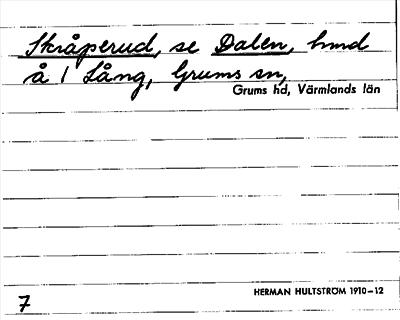 Skråperud, se Dalen, hmd
å 1 Lång, Grums sn,
Grums hd, Värmlands län
HERMAN HULTSTRÖM 1910–12
7